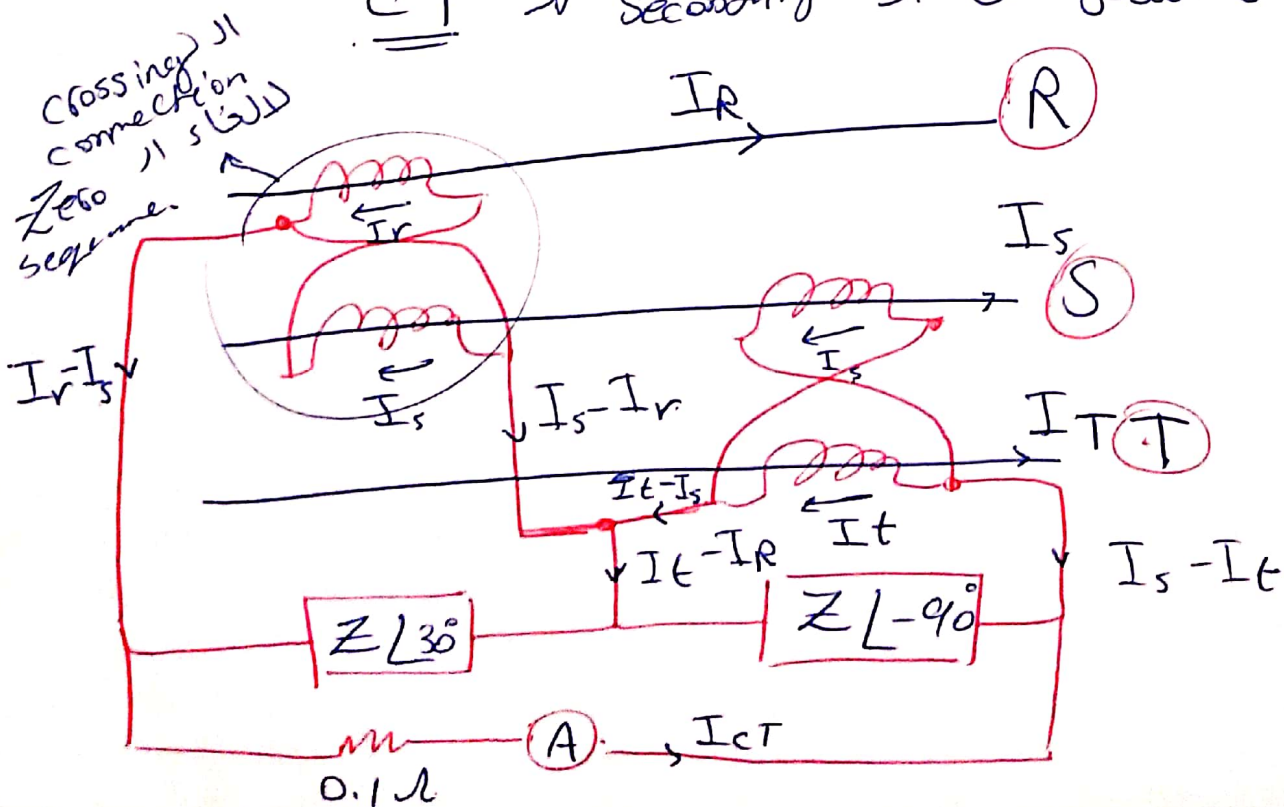 CT secondary
ال crossing
connection
لالغاء ال
Zero
sequence.
I_R
R
I_r
I_s
S
I_r-I_s
I_s
I_s-I_r
I_s
I_T T
I_t-I_s
I_t
I_t-I_R
I_s-I_t
Z∠30°
Z∠-90°
A
I_CT
0.1Ω